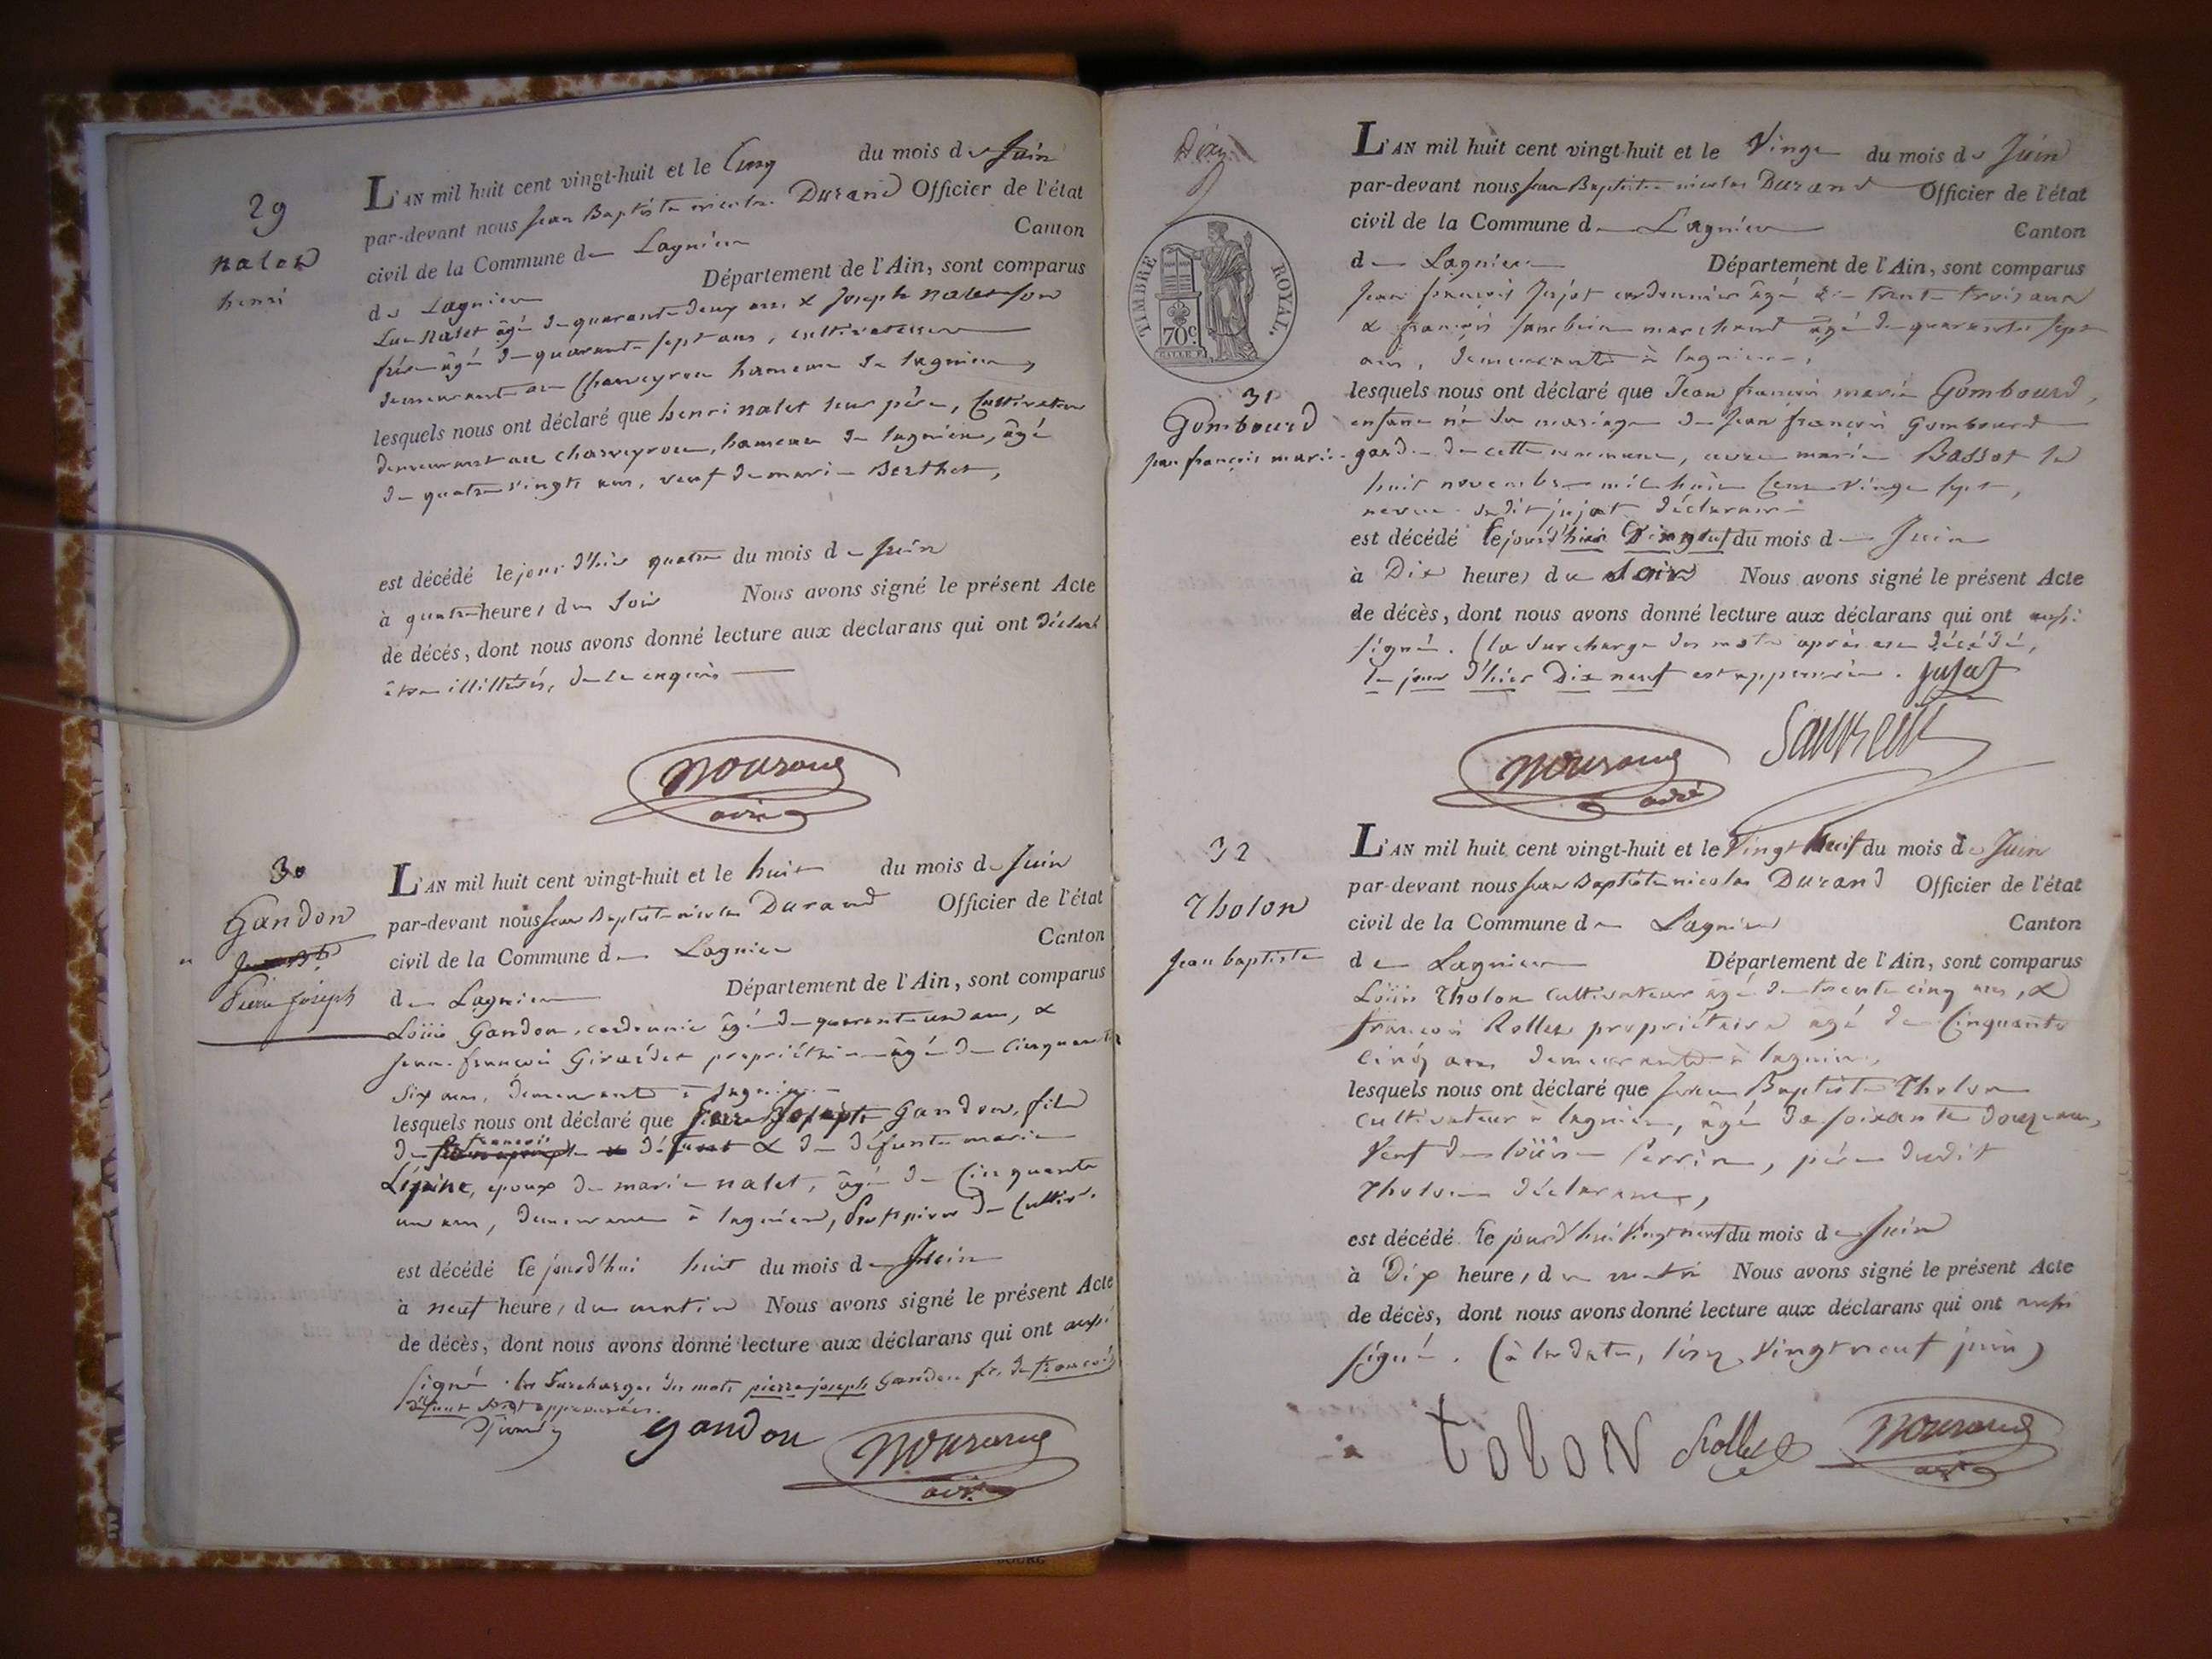 29
nalet
henri
L'AN mil huit cent vingt-huit et le Cinq du mois de Juin
par-devant nous Jean Baptiste nicolas Durand Officier de l'état
civil de la Commune de Lagnieu Canton
de Lagnieu Département de l'Ain, sont comparus
nalet âgé de quarante deux ans & Joseph nalet son
frère âgé de quarante sept ans, cultivateurs
demeurant au Charveyron hameau de lagnieu,
lesquels nous ont déclaré que henri nalet leur père, Cultivateur
demeurant au charveyron, hameau de lagnieu, âgé
de quatre vingts ans, veuf de marie Berthet,
est décédé le jour d'hier quatre du mois de Juin
à quatre heures du Soir Nous avons signé le présent Acte
de décès, dont nous avons donné lecture aux déclarans qui ont déclaré
être illittérés, de ce enquis
30
Gandon
Pierre Joseph
L'AN mil huit cent vingt-huit et le huit du mois de Juin
par-devant nous Jean Baptiste nicolas Durand Officier de l'état
civil de la Commune de Lagnieu Canton
de Lagnieu Département de l'Ain, sont comparus
Loüis Gandon, cordonnier âgé de quarante un ans, &
Jean françois Girardet propriétaire âgé de Cinquante
six ans, demeurant à lagnieu
lesquels nous ont déclaré que Pierre Joseph Gandon, fils
de françois défunt & de défunte marie
Lépine, époux de marie nalet, âgé de Cinquante
un ans, demeurant à lagnieu,
est décédé le jourd'hui huit du mois de Juin
à neuf heures du matin Nous avons signé le présent Acte
de décès, dont nous avons donné lecture aux déclarans qui ont aussi
signé. les Surcharges des mots pierre joseph Gandon fils de françois
défunt sont approuvées.
gandon
TIMBRE ROYAL.
70c
31
Gombourd
jean françois marie
L'AN mil huit cent vingt-huit et le Vingt du mois de Juin
par-devant nous Jean Baptiste nicolas Durand Officier de l'état
civil de la Commune de Lagnieu Canton
de Lagnieu Département de l'Ain, sont comparus
Jean françois Jujat cordonnier âgé de trente trois ans
& françois marchand âgé de quarante sept
ans, demeurants à lagnieu,
lesquels nous ont déclaré que Jean françois marie Gombourd,
enfant né du mariage de Jean françois Gombourd
garde de cette commune, avec marie Bassot le
huit novembre mil huit Cent Vingt sept,
neveu dudit jujat déclarant
est décédé le jour d'hier Dix neuf du mois de Juin
à Dix heures du soir Nous avons signé le présent Acte
de décès, dont nous avons donné lecture aux déclarans qui ont aussi
signé. (la surcharge des mots après est décédé,
le jour d'hier Dix neuf est approuvée. jujat
32
Tholon
Jean baptiste
L'AN mil huit cent vingt-huit et le Vingt neuf du mois de Juin
par-devant nous Jean Baptiste nicolas Durand Officier de l'état
civil de la Commune de Lagnieu Canton
de Lagnieu Département de l'Ain, sont comparus
Loüis Tholon Cultivateur âgé de trente cinq ans, &
françois Rollet propriétaire âgé de Cinquante
Cinq ans demeurants à lagnieu,
lesquels nous ont déclaré que Jean Baptiste Tholon
Cultivateur à lagnieu, âgé de soixante douze ans,
Veuf de loüise Perrin, père dudit
Tholon déclarant,
est décédé le jourd'hui Vingt neuf du mois de Juin
à Dix heures du matin Nous avons signé le présent Acte
de décès, dont nous avons donné lecture aux déclarans qui ont aussi
signé. (à la date, lisez Vingt neuf juin)
tolon Rollet